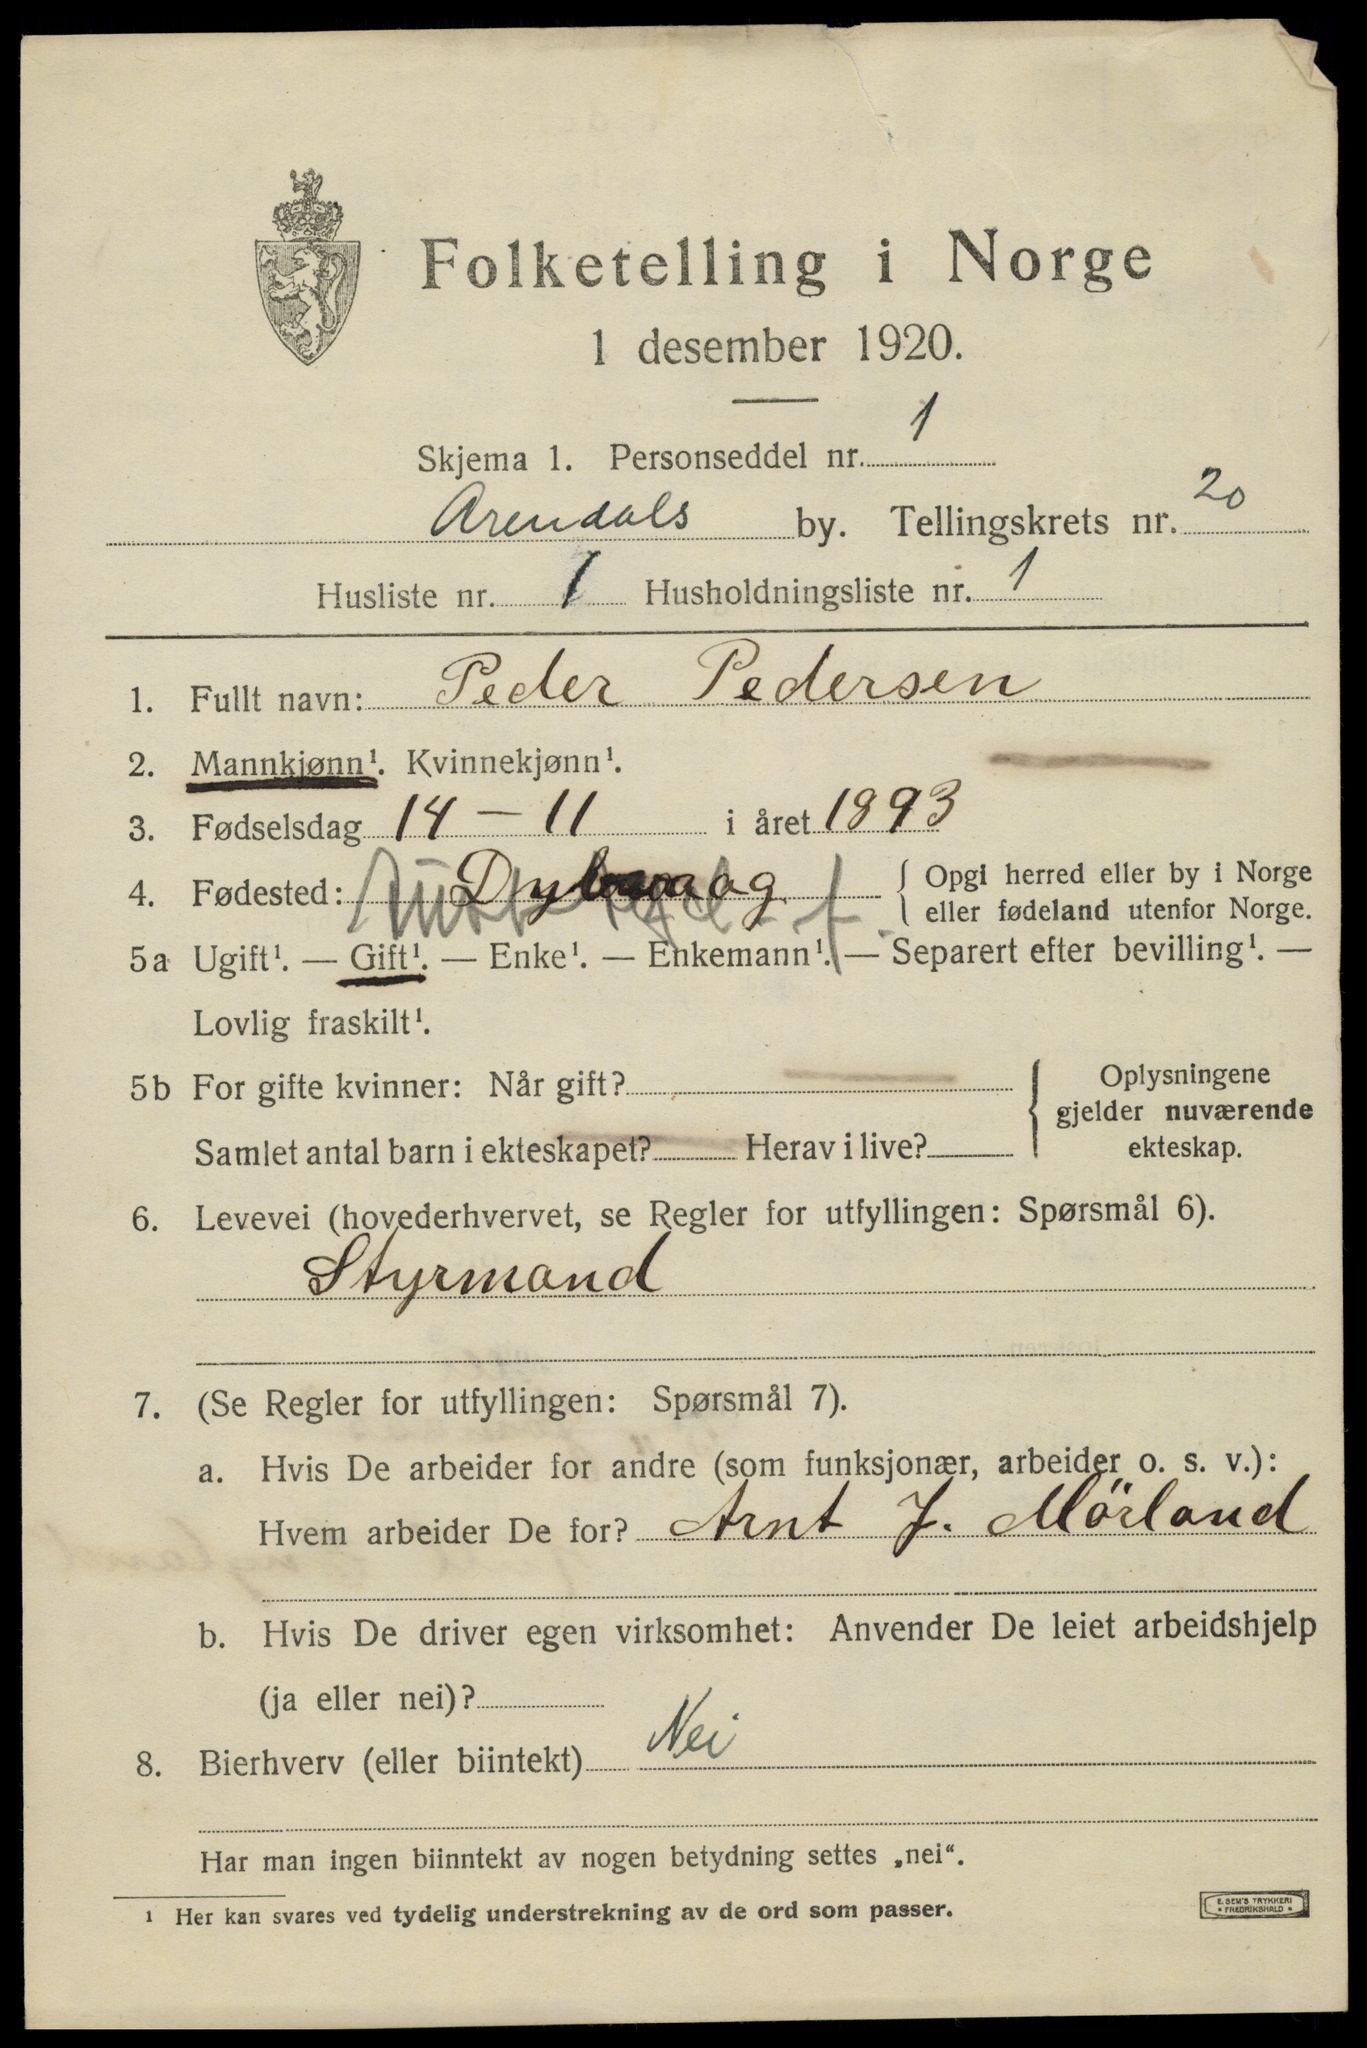 Folketelling i Norge
1 desember 1920.
Skjema 1. Personseddel nr. 1
Arendals by. Tellingskrets nr. 20
Husliste nr. 1 Husholdningsliste nr. 1
1. Fullt navn: Peder Pedersen
2. Mannkjønn¹. Kvinnekjønn¹.
3. Fødselsdag 14 – 11 i året 1893
4. Fødested: Dybvaag { Opgi herred eller by i Norge
eller fødeland utenfor Norge.
5a Ugift¹. — Gift¹. — Enke¹. — Enkemann¹. — Separert efter bevilling¹. —
Lovlig fraskilt¹.
5b For gifte kvinner: Når gift?
Samlet antal barn i ekteskapet? Herav i live?
} Oplysningene
gjelder nuværende
ekteskap.
6. Levevei (hovederhvervet, se Regler for utfyllingen: Spørsmål 6).
Styrmand
7. (Se Regler for utfyllingen: Spørsmål 7).
a. Hvis De arbeider for andre (som funksjonær, arbeider o. s. v.):
Hvem arbeider De for? Arnt J. Mörland
b. Hvis De driver egen virksomhet: Anvender De leiet arbeidshjelp
(ja eller nei)?
8. Bierhverv (eller biintekt) Nei
Har man ingen biinntekt av nogen betydning settes „nei“.
¹ Her kan svares ved tydelig understrekning av de ord som passer.
E. SEM'S TRYKKERI
• FREDRIKSHALD •